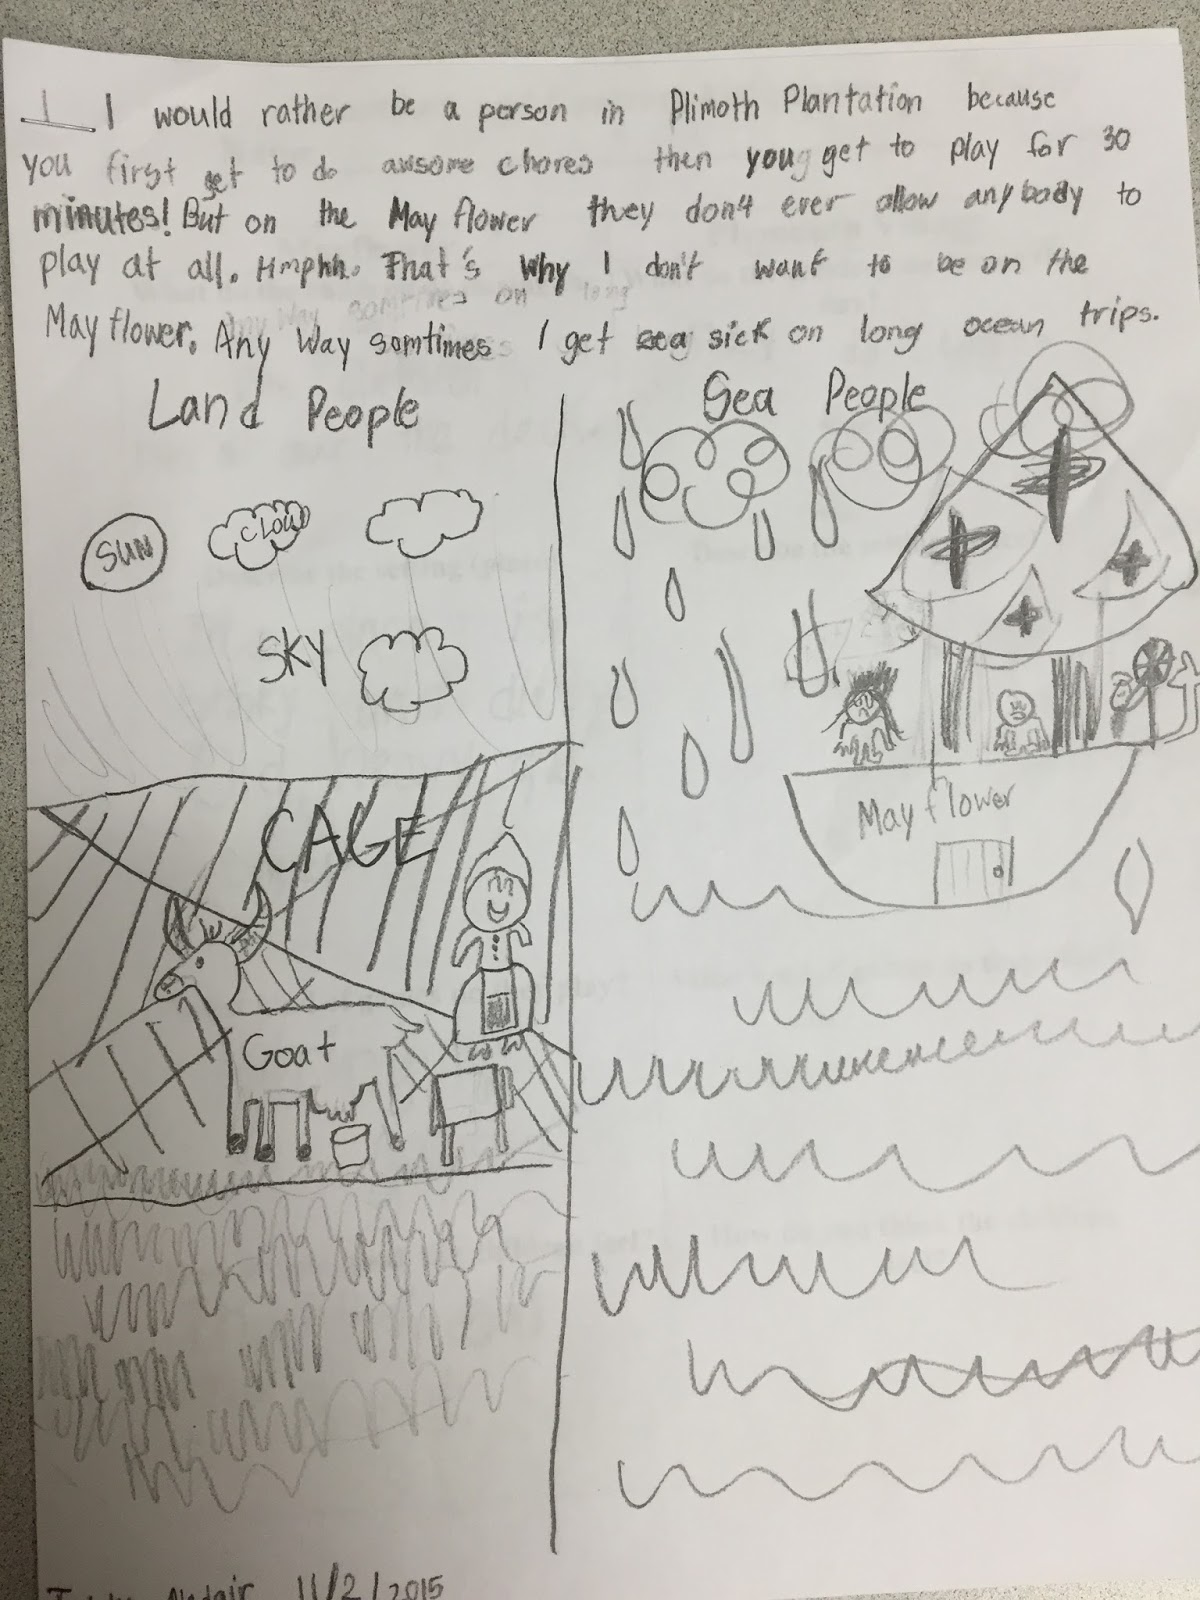 I I would rather be a person in Plimoth Plantation because
you first get to do awsome chores then you get to play for 30
minutes! But on the May flower they don4 ever allow anybody to
play at all. Hmphh. That's why I don't want to be on the
May flower. Any Way somtimes I get sea sick on long ocean trips.
Land People
Sea People
SUN
CLOUD
SKY
CAGE
Goat
May flower
11/2/2015